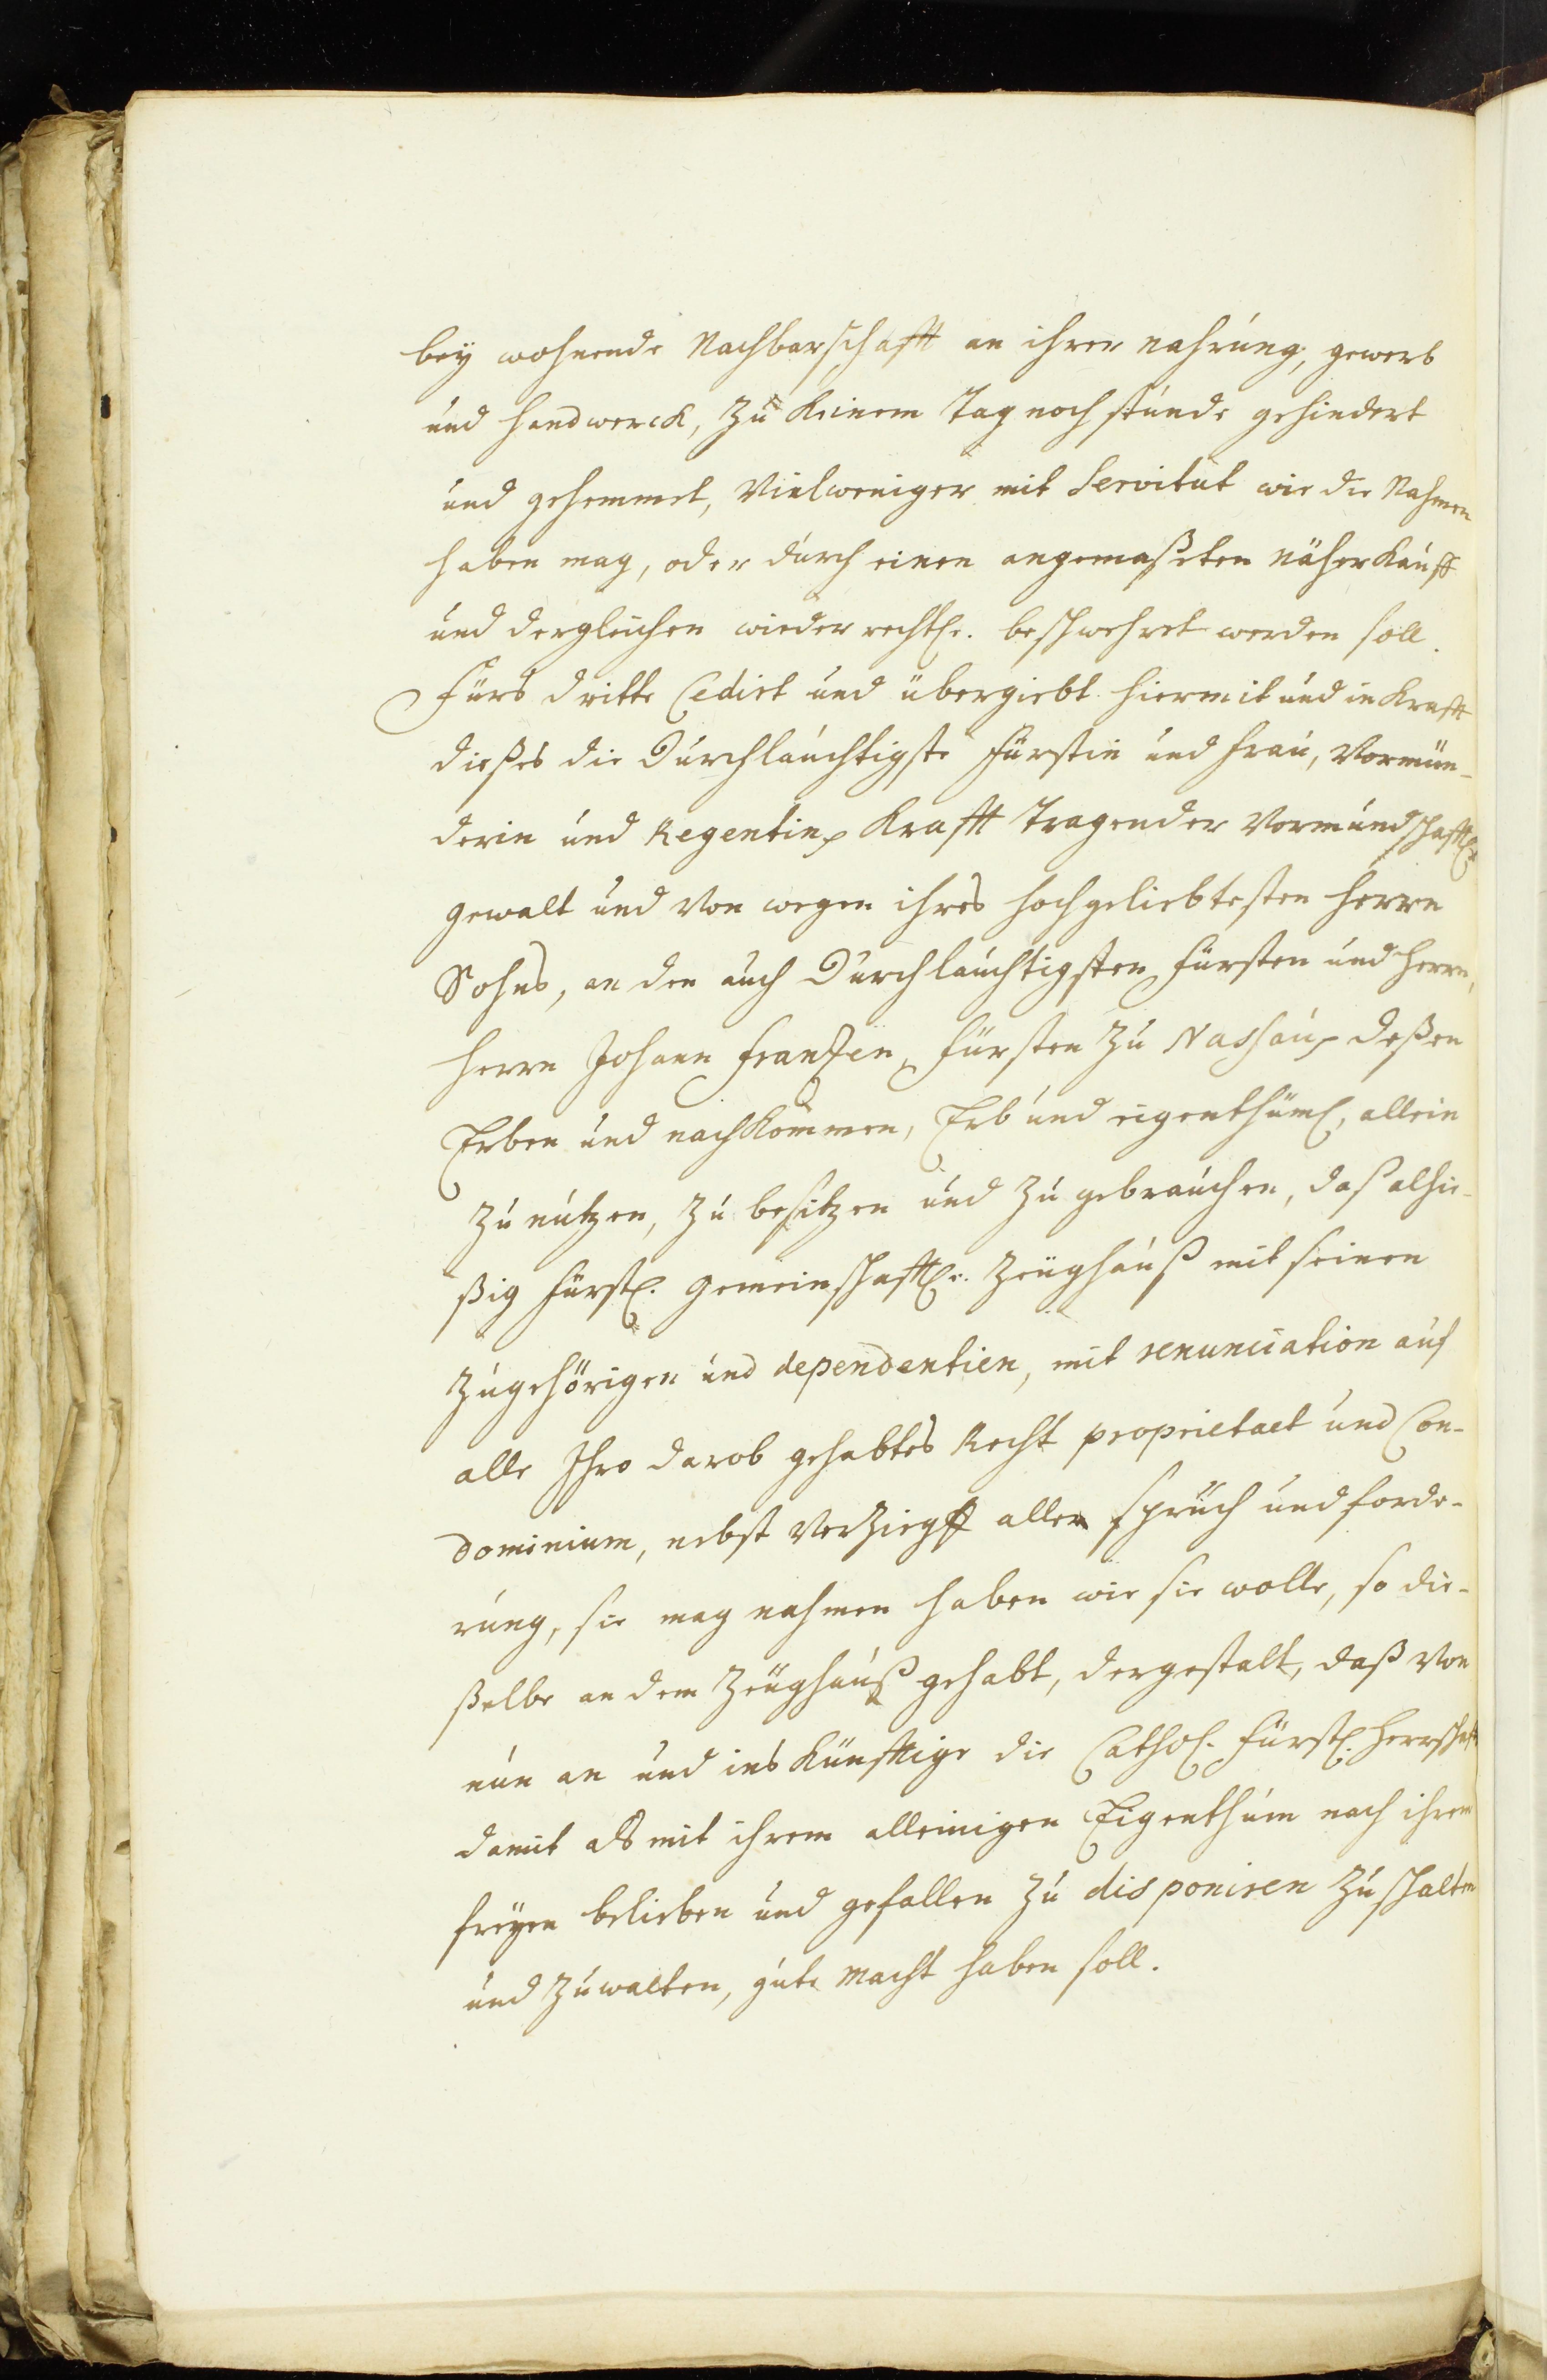 bey wohnende Nachbarschafft an ihrer nahrung, gewerb
und handwerck, zu keinem Tag noch stunde gehindert
und gehemmet, Vielweniger mit Servitut wie die Nahmen
haben mag, oder durch einen angemaßeten näherkauff
und dergleichen wiederrechtl. beschwehret werden soll.
Fürs dritte Cedirt und übergiebt hiermit und in krafft
dießes die Durchlauchtigste Fürstin und Frau, Vormün-
derin und Regentin, Krafft Tragender Vormundschafftl.
gewalt und Von wegen ihres hochgeliebtesten Herrn
Sohns, an den auch Durchlauchtigsten Fürsten und Herrn,
Herrn Johann Frantzen, Fürsten zu Nassau, deßen
Erben und nachkommen, Erb und eigenthüml. allein
zu nutzen, zu besitzen und zu gebrauchen, das alhie-
ßig Fürstl. Gemeinschafftl. Zeughauß mit seinen
Zugehörigen und dependentien, mit renunciation auf
alle Ihro darob gehabtes Recht proprietaet und Con-
dominium, nebst Verzieg aller spruch und forde-
rung, sie mag nahmen haben wie sie wolle, so die-
ßelbe an dem Zeughauß gehabt, dergestalt, daß Von
nun an und ins künfftige die Cathol. Fürstl. Herrschafft
damit als mit ihrem alleinigen Eigenthum nach ihrem
freyen belieben und gefallen zu disponiren zu schalten
und zu walten, gute Macht haben soll.